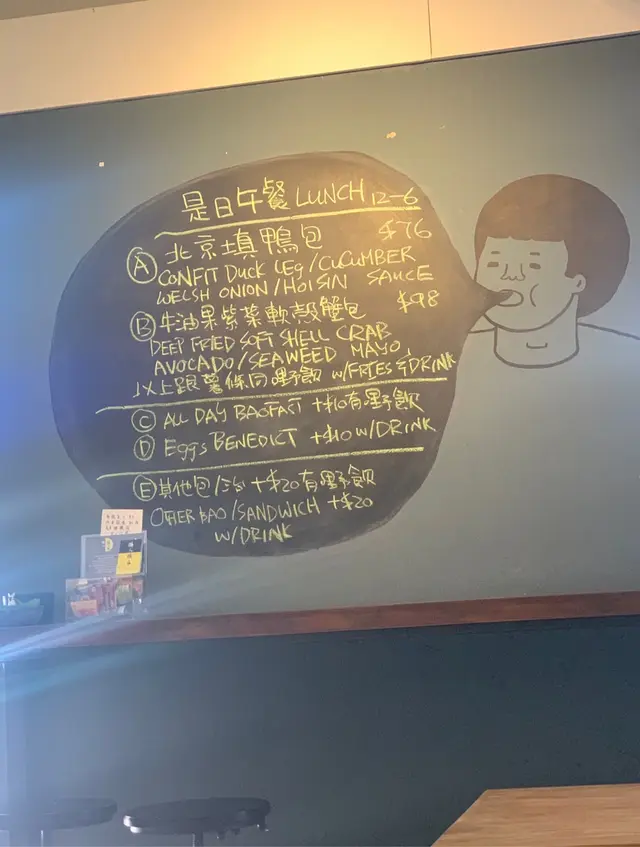 是日午餐 LUNCH 12-6
Ⓐ 北京填鴨包 $76
CONFIT DUCK LEG/CUCUMBER
WELSH ONION/HOISIN SAUCE
Ⓑ 牛油果紫菜軟殼蟹包 $98
DEEP FRIED SOFT SHELL CRAB
AVOCADO/SEAWEED MAYO
以上跟薯條同嘢飲 W/FRIES & DRINK
Ⓒ ALL DAY BAOFAST +$10有嘢飲
Ⓓ EGGS BENEDICT +$10 W/DRINK
Ⓔ 其他包/治 +$20有嘢飲
OTHER BAO/SANDWICH +$20
W/DRINK